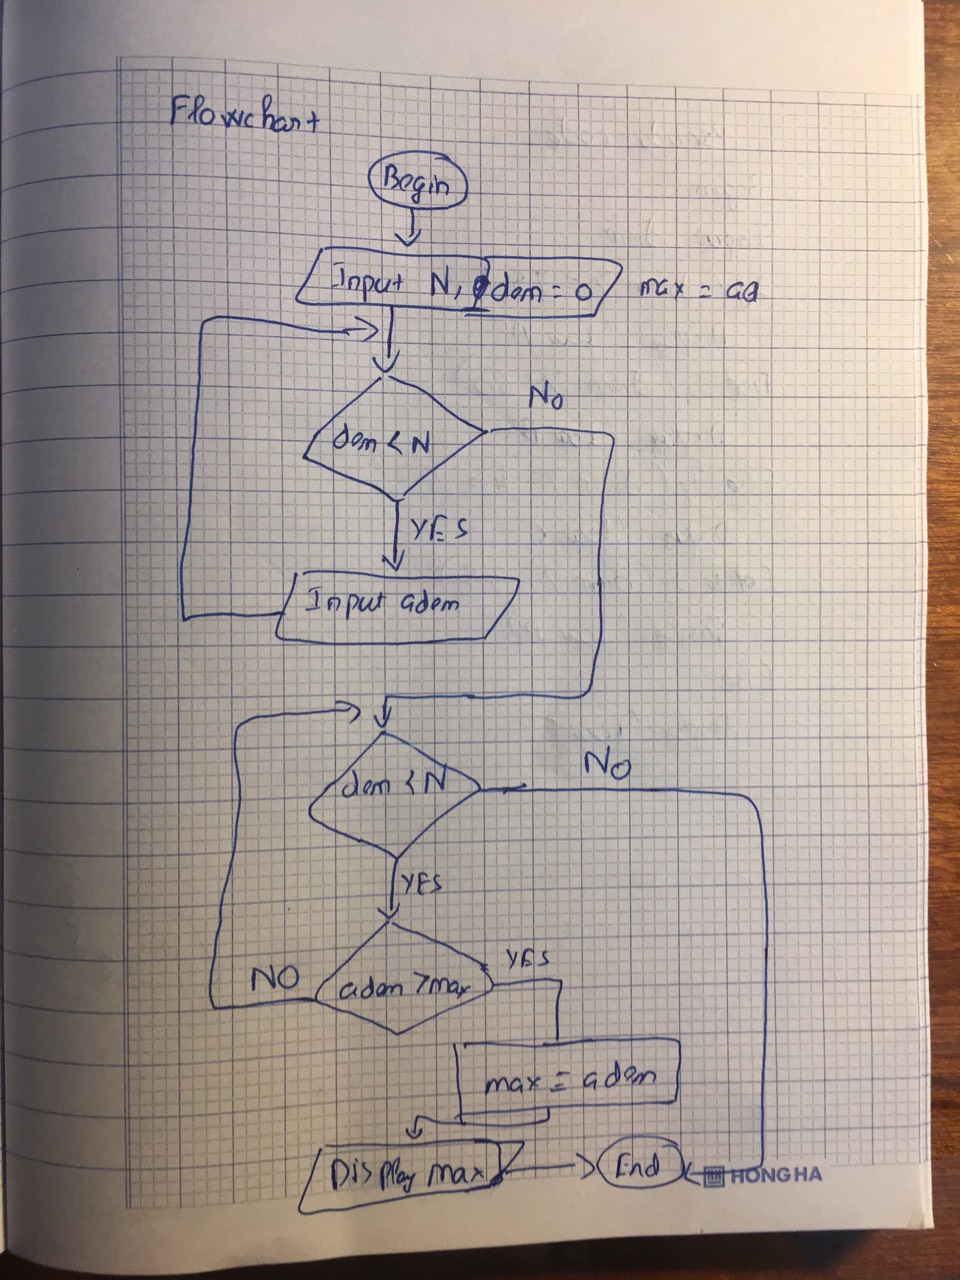 Flowchart
Begin
Input N, dem = 0 max = a0
dem < N
No
YES
Input adem
dem < N
No
YES
adem > max
YES
NO
max = adem
Display max
End
HONG HA